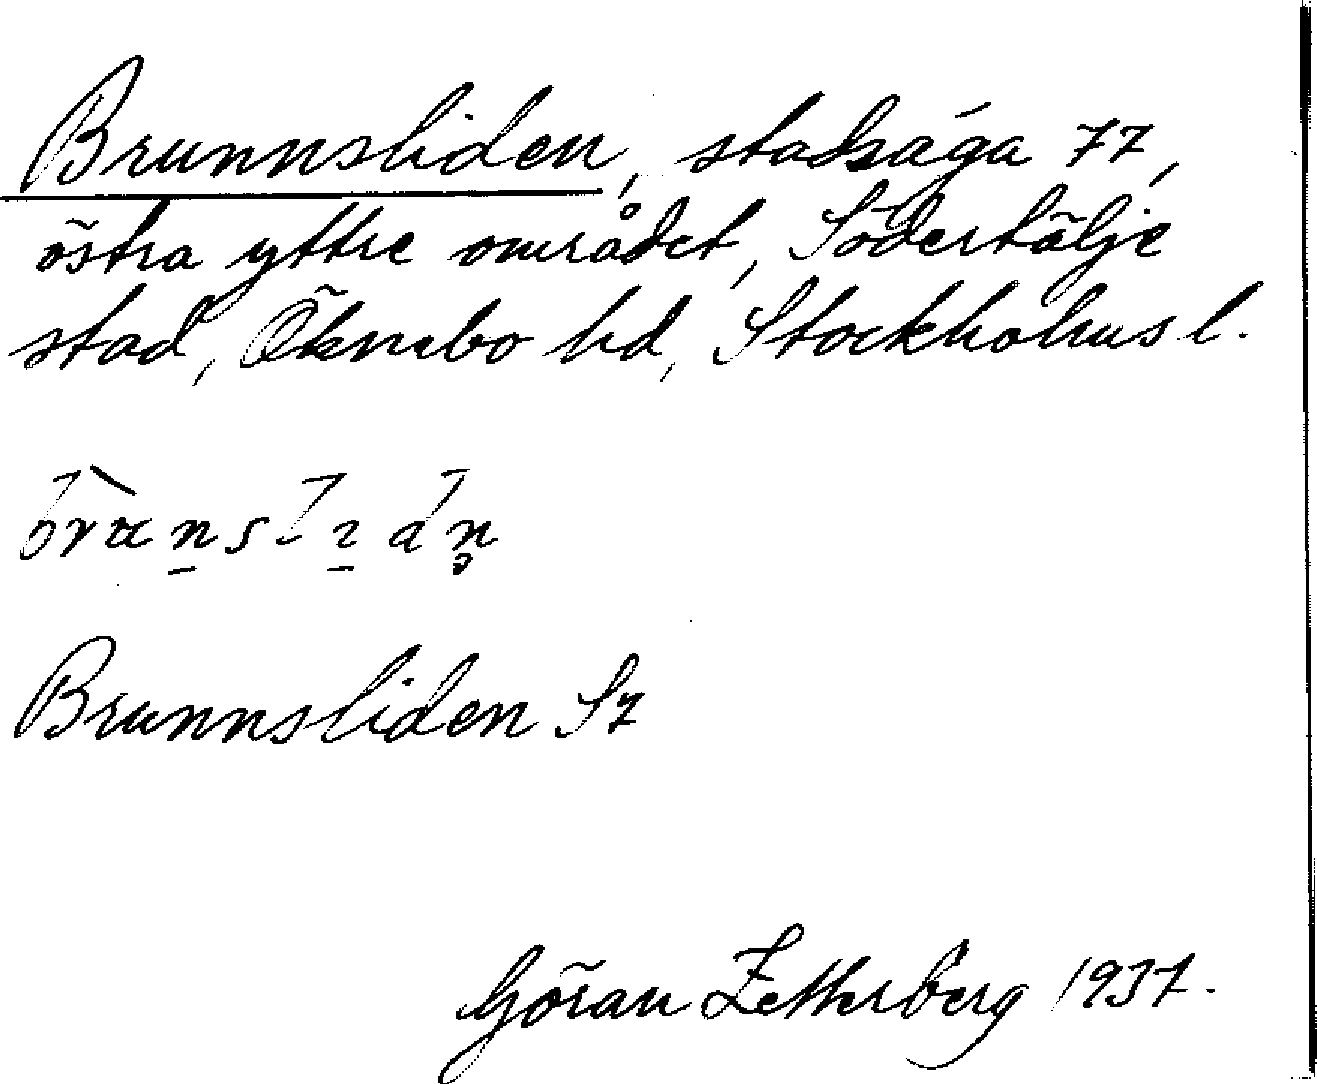 Brunnsliden, stadsäga 77,
östra yttre området, Södertälje
stad, Öknebo hd, Stockholms l.
Brunnsliden S7
Göran Zetterberg 1937.